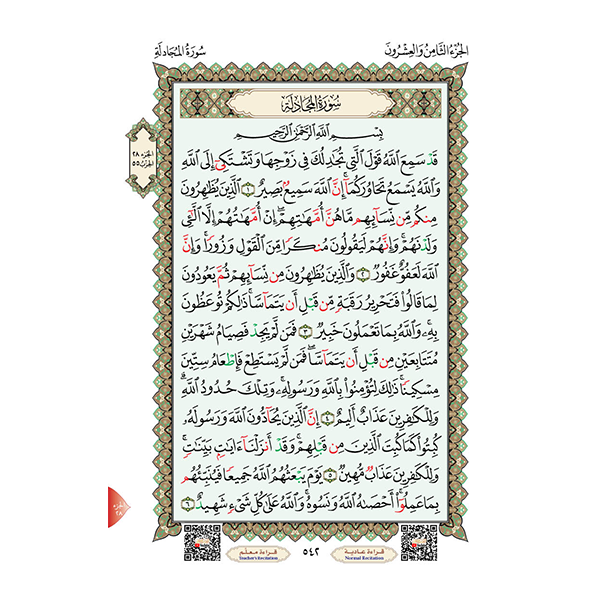 الجزء الثامن والعشرون
سورة المجادلة
سُورَةُ المُجَادلَةِ
بِسْمِ ٱللَّهِ ٱلرَّحْمَٰنِ ٱلرَّحِيمِ
قَدْ سَمِعَ ٱللَّهُ قَوْلَ ٱلَّتِى تُجَٰدِلُكَ فِى زَوْجِهَا وَتَشْتَكِىٓ إِلَى ٱللَّهِ
وَٱللَّهُ يَسْمَعُ تَحَاوُرَكُمَآ ۚ إِنَّ ٱللَّهَ سَمِيعٌۢ بَصِيرٌ ١ ٱلَّذِينَ يُظَٰهِرُونَ
مِنكُم مِّن نِّسَآئِهِم مَّا هُنَّ أُمَّهَٰتِهِمْ ۖ إِنْ أُمَّهَٰتُهُمْ إِلَّا ٱلَّٰٓـِٔى
وَلَدْنَهُمْ ۚ وَإِنَّهُمْ لَيَقُولُونَ مُنكَرًا مِّنَ ٱلْقَوْلِ وَزُورًا ۚ وَإِنَّ
ٱللَّهَ لَعَفُوٌّ غَفُورٌ ٢ وَٱلَّذِينَ يُظَٰهِرُونَ مِن نِّسَآئِهِمْ ثُمَّ يَعُودُونَ
لِمَا قَالُوا۟ فَتَحْرِيرُ رَقَبَةٍ مِّن قَبْلِ أَن يَتَمَآسَّا ۚ ذَٰلِكُمْ تُوعَظُونَ
بِهِۦ ۚ وَٱللَّهُ بِمَا تَعْمَلُونَ خَبِيرٌ ٣ فَمَن لَّمْ يَجِدْ فَصِيَامُ شَهْرَيْنِ
مُتَتَابِعَيْنِ مِن قَبْلِ أَن يَتَمَآسَّا ۖ فَمَن لَّمْ يَسْتَطِعْ فَإِطْعَامُ سِتِّينَ
مِسْكِينًا ۚ ذَٰلِكَ لِتُؤْمِنُوا۟ بِٱللَّهِ وَرَسُولِهِۦ ۚ وَتِلْكَ حُدُودُ ٱللَّهِ ۗ
وَلِلْكَٰفِرِينَ عَذَابٌ أَلِيمٌ ٤ إِنَّ ٱلَّذِينَ يُحَآدُّونَ ٱللَّهَ وَرَسُولَهُۥ
كُبِتُوا۟ كَمَا كُبِتَ ٱلَّذِينَ مِن قَبْلِهِمْ ۚ وَقَدْ أَنزَلْنَآ ءَايَٰتٍۭ بَيِّنَٰتٍ ۚ
وَلِلْكَٰفِرِينَ عَذَابٌ مُّهِينٌ ٥ يَوْمَ يَبْعَثُهُمُ ٱللَّهُ جَمِيعًا فَيُنَبِّئُهُم
بِمَا عَمِلُوٓا۟ ۚ أَحْصَىٰهُ ٱللَّهُ وَنَسُوهُ ۚ وَٱللَّهُ عَلَىٰ كُلِّ شَىْءٍ شَهِيدٌ ٦
الجزء ٢٨
الحزب ٥٥
الجزء
٢٨
قراءة عادية
Normal Recitation
٥٤٢
قراءة معلم
Teacher's Recitation